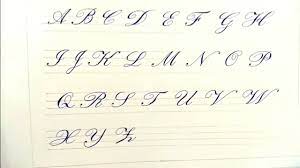 A B C D E F G H
I J K L M N O P
Q R S T U V W
X Y Z